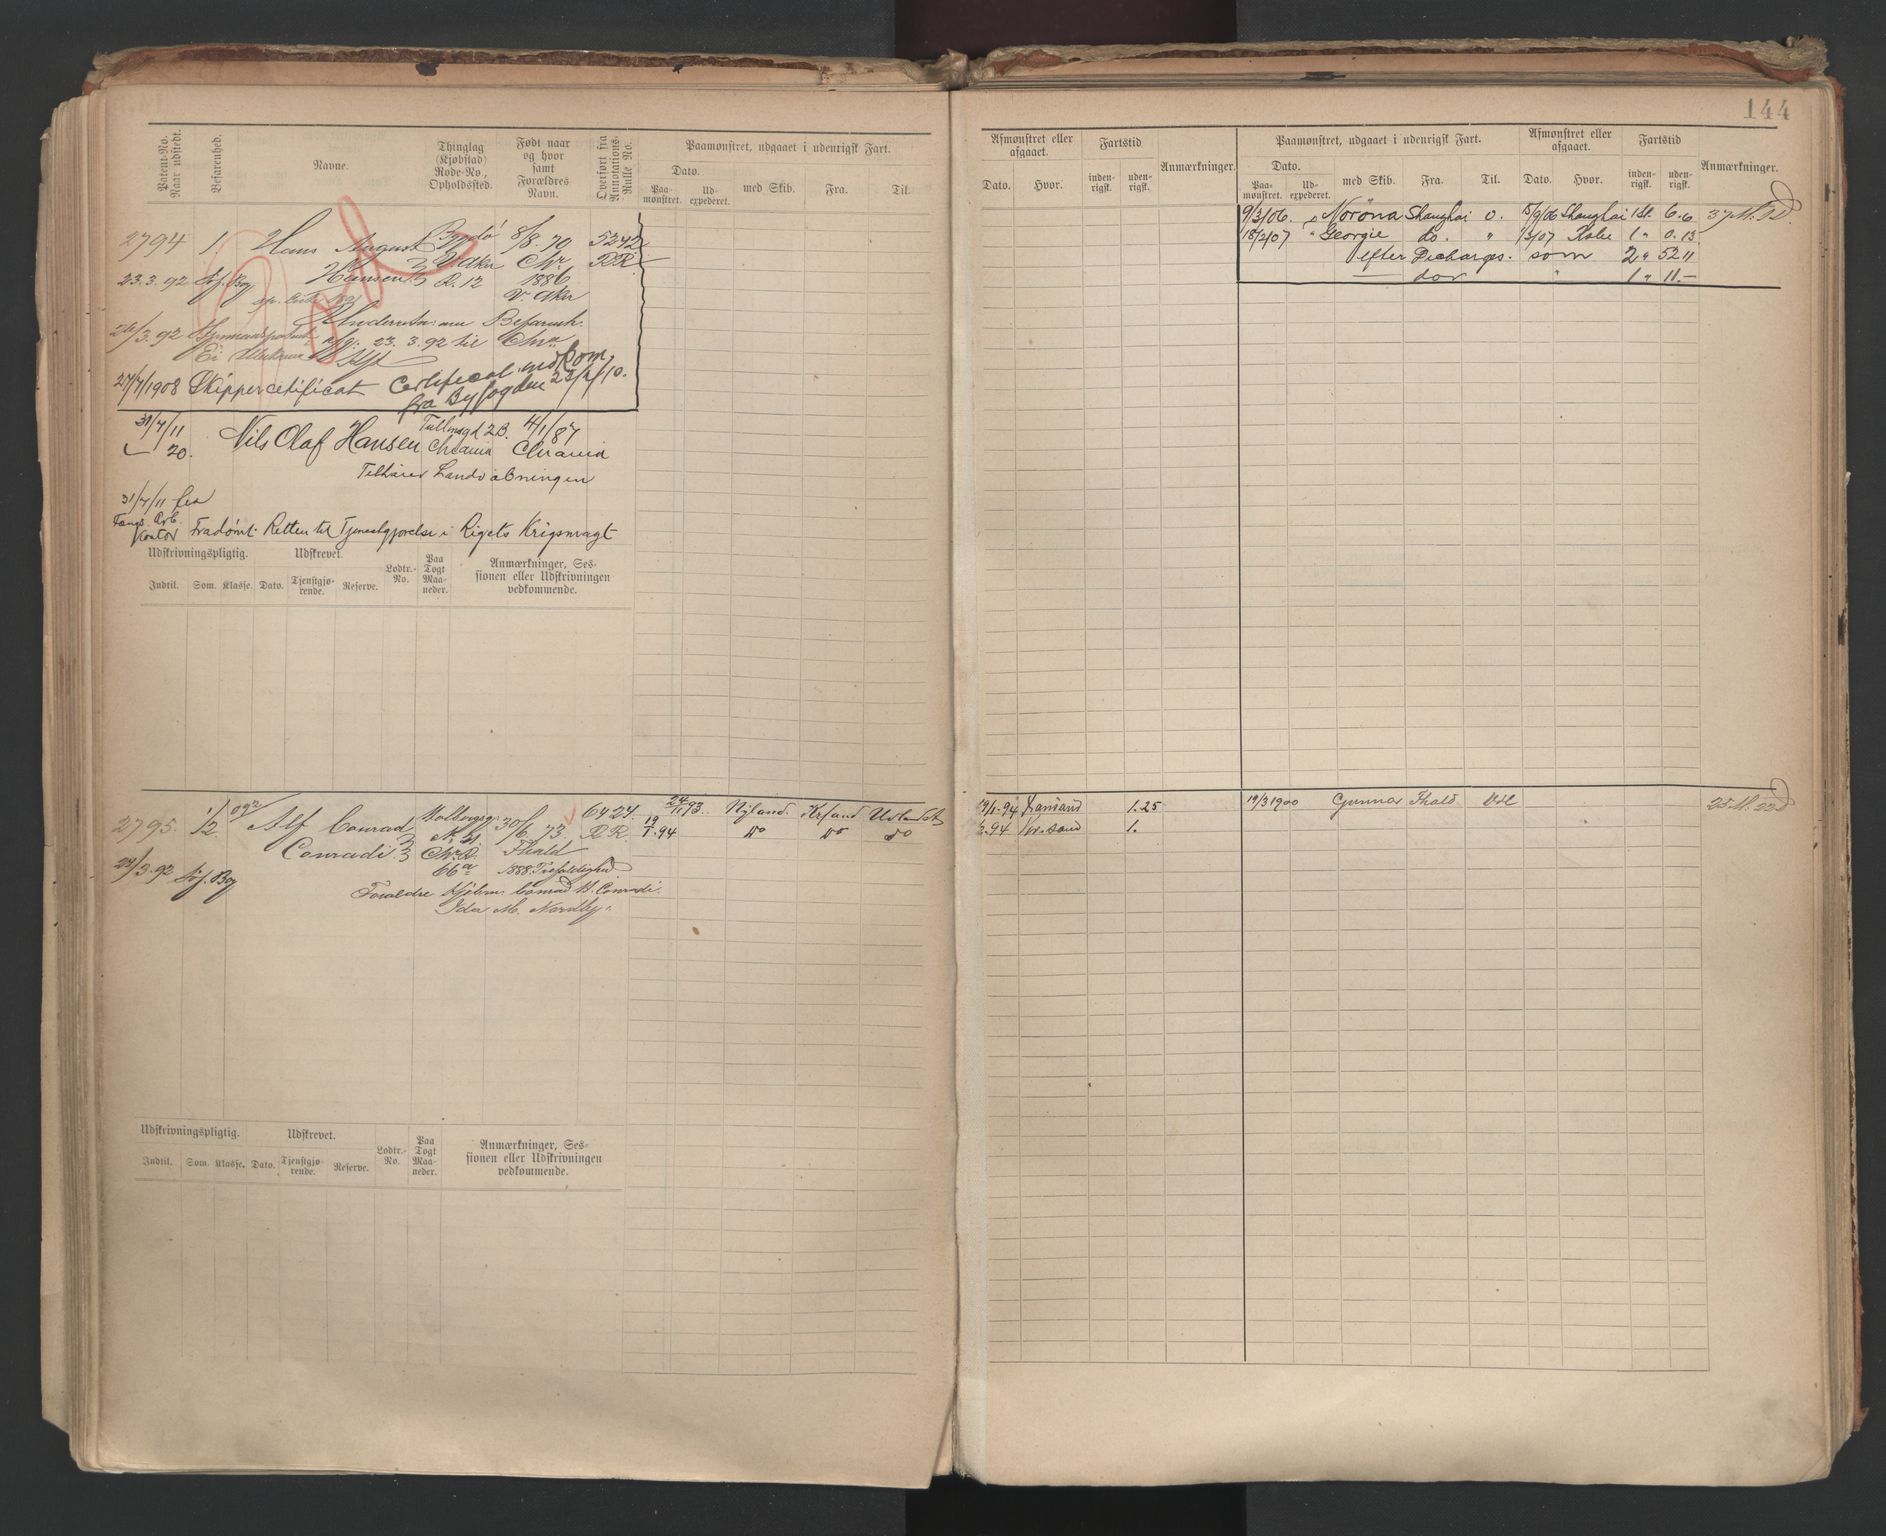 144
Patent-No. Naar udstedt.
Befarenhed.
Navne.
Thinglag (Kjøbstad) Rode-No, Opholdssted.
Født naar og hvor samt Forældres Navn.
Overført fra Annotations-Rulle No.
Paamønstret, udgaaet i udenrigsk Fart.
Dato.
Paamønstret.
Udexpederet.
med Skib.
Fra.
Til.
Afmønstret eller afgaaet.
Dato.
Hvor.
Fartstid
indenrigsk.
udenrigsk.
Anmærkninger.
Paamønstret, udgaaet i udenrigsk Fart.
Dato.
Paamønstret.
Udexpederet.
med Skib.
Fra.
Til.
Afmønstret eller afgaaet.
Dato.
Hvor.
Fartstid
indenrigsk.
udenrigsk.
Anmærkninger.
2794 1 Hans August Bygdø 8/8.70 5242
Hansen V. Aker Chr. RR.
23.3.92 Søf. Boy R. 12 1886
V. Aker
26/3.92 Underretn. om Befarenh.
23.3.92 til Chra
27/7/1908 Skippercetificat Certificat indkom
fra Byfogden 22/2/10.
9/3/06. Noröna Shanghai 15/9/06 Shanghai 1 St. 6.6
18/2/07 " Georgie do. " /3/07 Kobe 1 " 0.13
efter Discharges. som 2 " 52 11
dor " 1 " 11 –
31/7/11 Nils Olaf Hansen Tullinsgd 2B. 4/1/87
20. Chrania Chrania
Tilhører Landværningen
31/7/11 fra
Fangs. Arb. Kontor Fradømt Retten til Tjenestgjørelse i Rigets Krigsmagt
Udskrivningspligtig.
Udskrevet.
Lodtr.-No.
Paa Togt Maaneder.
Anmærkninger, Sessionen eller Udskrivningen vedkommende.
Indtil. Som. Klasse. Dato. Tjenstgjørende. Reserve.
2795. 1/2 092 Alf Conrad Holbergsg. 30/6.73. 6424. 24/1 93. Nyland. Krsand Udlandet
Conradi N. 21 Thald RR. 19/1.94 do do do
66a 1888. Trefoldighed
24/3.92 Søf. Boy
Forældre Kjøbm. Conrad H. Conradi.
Ida M. Nordby.
19/1.94 1.25
2.94 Kr.sand 1.
19/3 1900 Gunnar Thald 25. M. 22d
Udskrivningspligtig.
Udskrevet.
Lodtr.-No.
Paa Togt Maaneder.
Anmærkninger, Sessionen eller Udskrivningen vedkommende.
Indtil. Som. Klasse. Dato. Tjenstgjørende. Reserve.